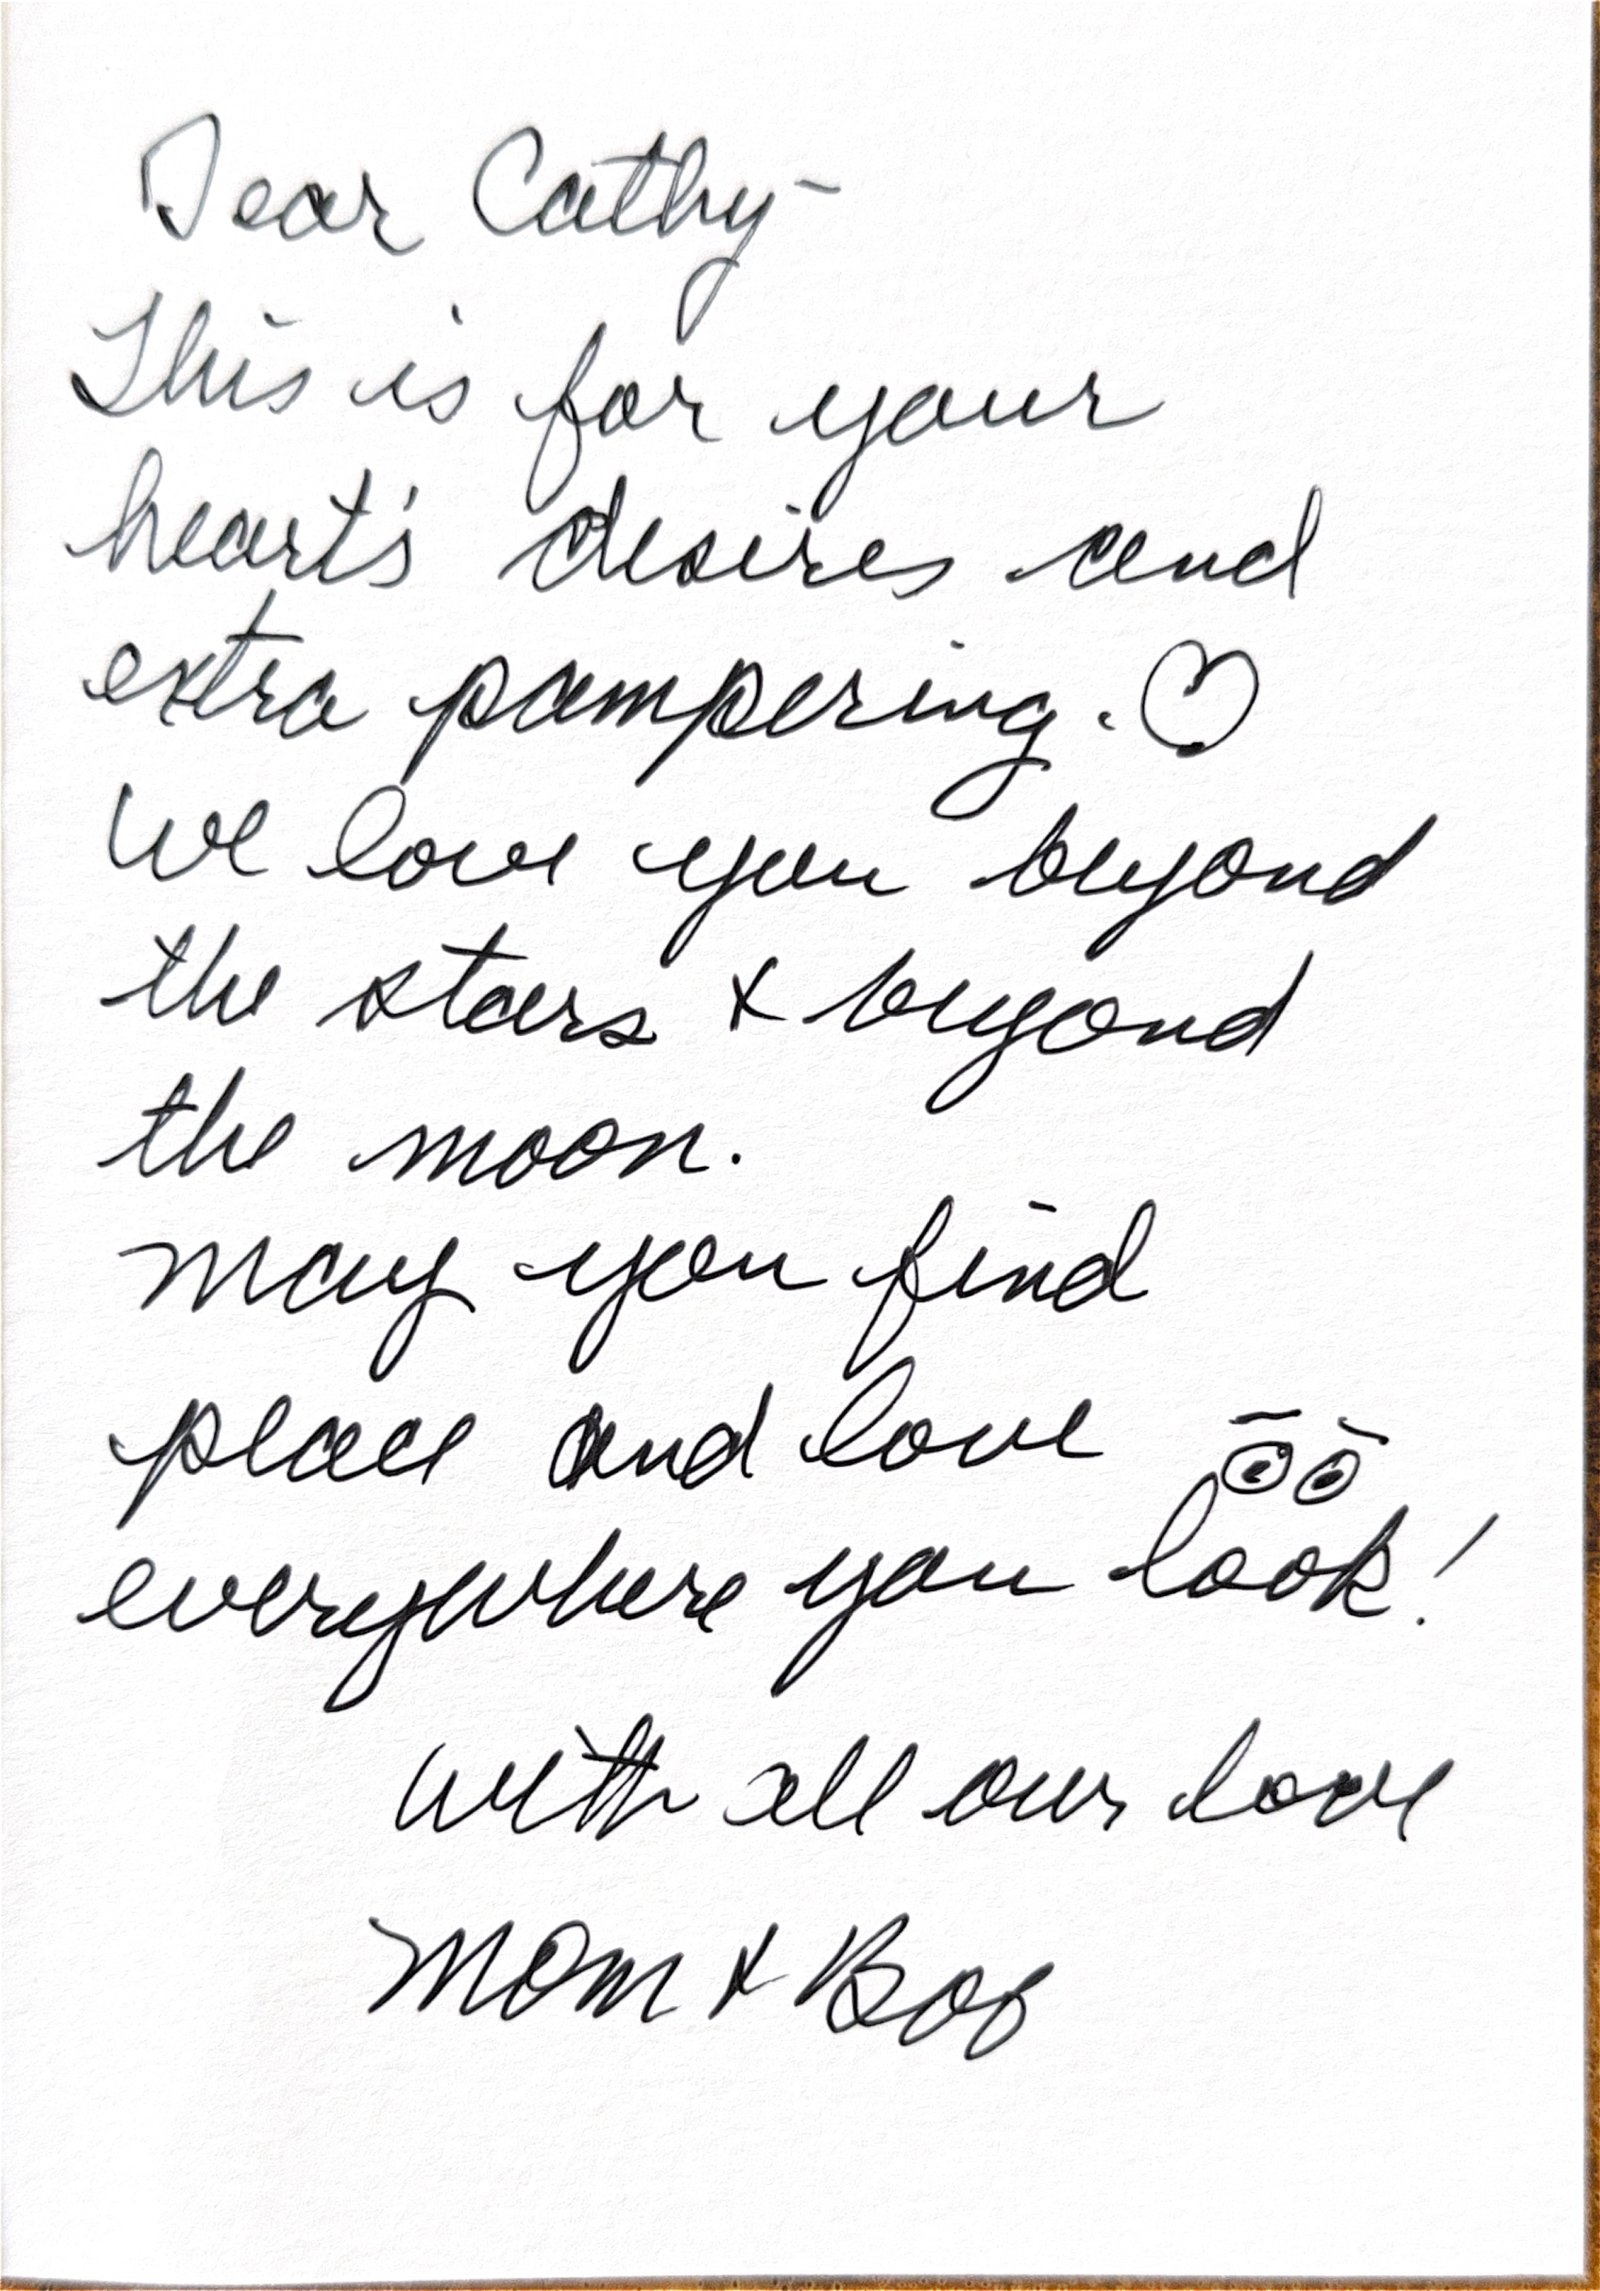 Dear Cathy-
This is for your
heart's desires and
extra pampering. ♡
We love you beyond
the stars & beyond
the moon.
May you find
peace and love
everywhere you look!
With all our love
Mom & Bob